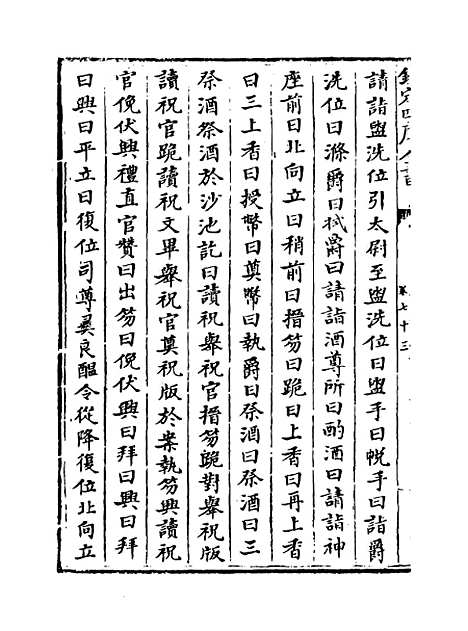 欽定四庫全書
卷七十三
請詣盥洗位引太尉至盥洗位曰盥手曰帨手曰詣爵
洗位曰滌爵曰拭爵曰請詣酒尊所曰酌酒曰請詣神
座前曰北向立曰稍前曰搢笏曰跪曰上香曰再上香
曰三上香曰授幣曰奠幣曰執爵曰祭酒曰祭酒曰三
祭酒祭酒於沙池訖曰讀祝舉祝官搢笏跪對舉祝版
讀祝官跪讀祝文畢舉祝官奠祝版於案執笏興讀祝
官俛伏興禮直官贊曰出笏曰俛伏興曰拜曰興曰拜
曰興曰平立曰復位司尊彞良醖令從降復位北向立